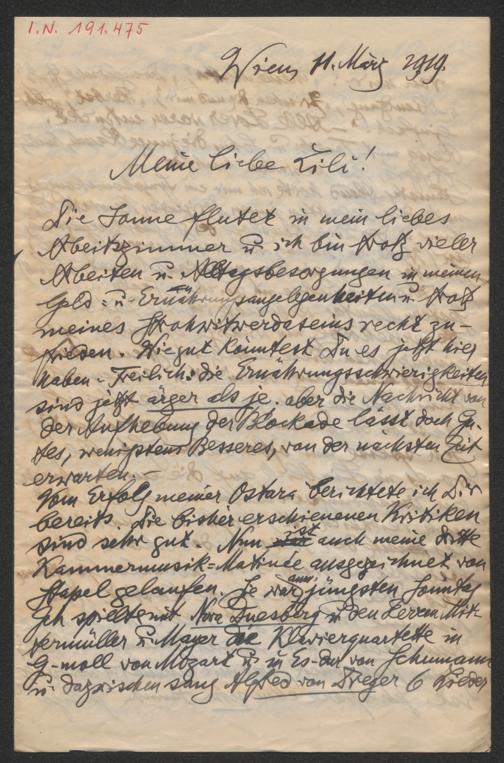 I.N. 191.475
Wien, 11. März 1919.
Meine liebe Lili!
Die Sonne flutet in mein liebes
Arbeitszimmer u. ich bin trotz vieler
Arbeiten u. Alltagsbesorgungen in meinen
Geld- u. Ernährungsangelegenheiten u. trotz
meines Strohwitwerdaseins recht zu-
frieden. Wie gut könntest Du es jetzt hier
haben. Freilich: die Ernährungsschwierigkeiten
sind jetzt ärger als je. aber die Nachricht von
der Aufhebung der Blockade lässt doch Gu-
tes, wenigstens Besseres, von der nächsten Zeit
erwarten. –
Vom Erfolg meiner Ostara berichtete ich Dir
bereits. Die bisher erschienenen Kritiken
sind sehr gut. Nun ist auch meine dritte
Kammermusik-Matinée ausgezeichnet von
Stapel gelaufen. Sie war am jüngsten Sonntag
Ich spielte mit Nora Duesberg u. den Herren Mit-
termüller u. Mayer die Klavierquartette in
G-moll von Mozart u. in Es-dur von Schumann
u. dazwischen sang Alfred von Dreger 6 Lieder